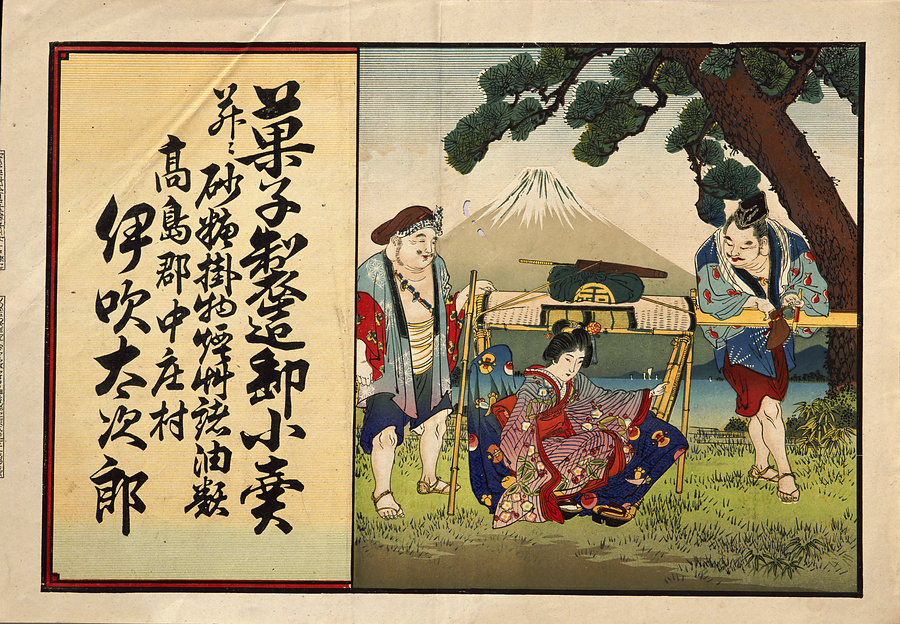 菓子製造卸小賣
并ニ砂糖掛物煙艸諸油類
高島郡中庄村
伊吹太次郎